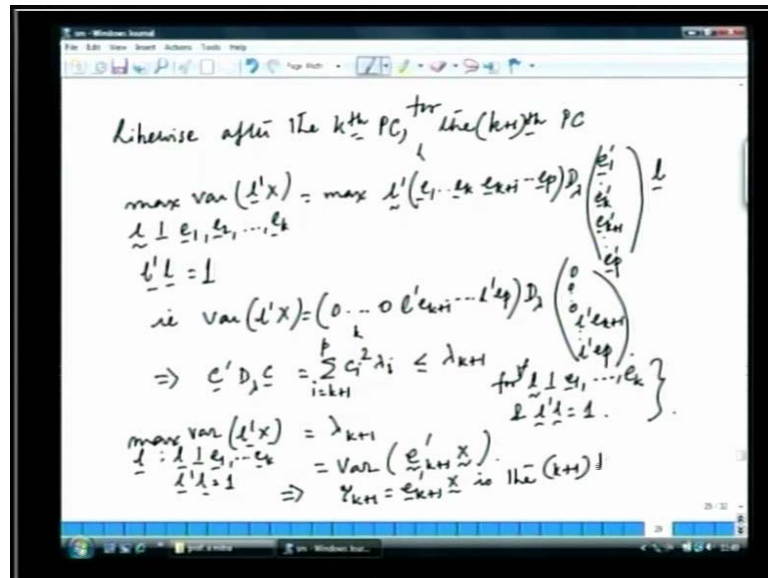 srn - Windows Journal
File Edit View Insert Actions Tools Help
Likewise after the kth PC, for the (k+1)th PC
max var (l'x) = max l' (e1 ... ek ek+1 ... ep) Dλ (e1' . ek' ek+1' : ep') l
l ⊥ e1, e2, ..., ek
l'l = 1
ie var (l'x) = (0 ... 0 l'ek+1 ... l'ep) Dλ (0 0 : 0 l'ek+1 l'ep)
k
⇒ c' Dλ c = Σ_{i=k+1}^{p} ci² λi ≤ λk+1 for ∀ l ⊥ e1, ..., ek
& l'l = 1.
max var (l'x) = λk+1
l : l ⊥ e1, ... ek
l'l = 1
= var (e'k+1 x).
⇒ Yk+1 = e'k+1 x is the (k+1)
29 / 32
29
srn - Windows Jour...